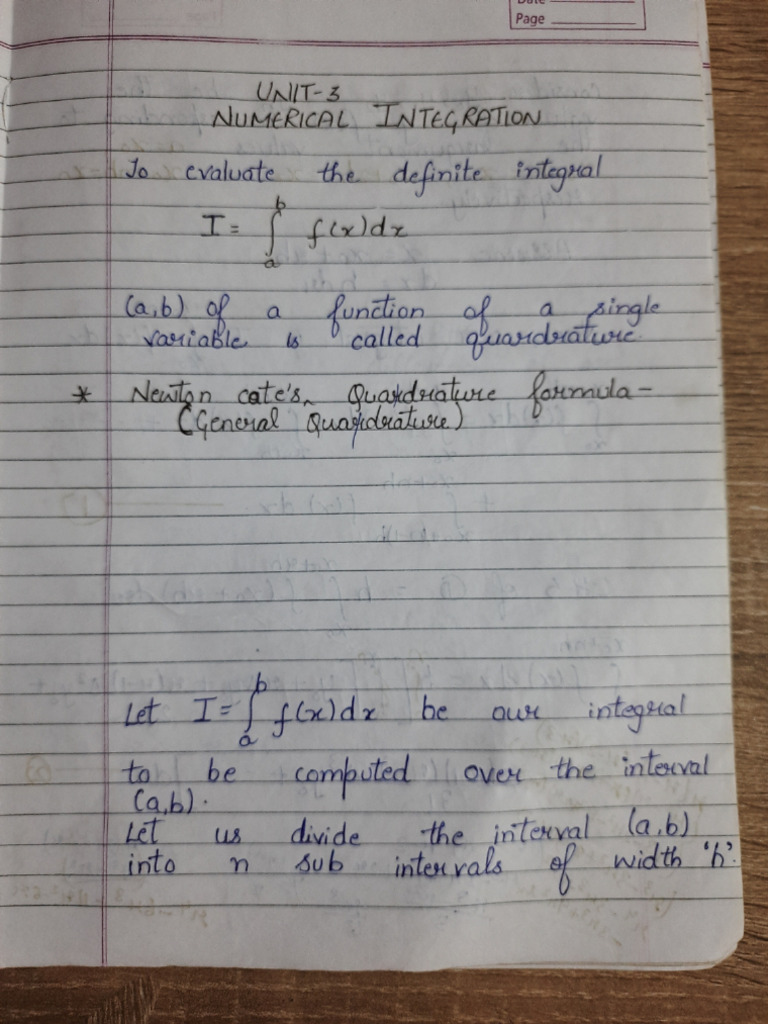 Date
Page
UNIT-3
NUMERICAL INTEGRATION
To evaluate the definite integral
I = ∫_a^b f(x)dx
(a,b) of a function of a single
variable is called quardrature.
* Newton cote's, Quadrature formula-
(General Quadrature)
Let I = ∫_a^b f(x)dx be our integral
to be computed over the interval
(a,b).
Let us divide the interval (a,b)
into n sub intervals of width 'h'.